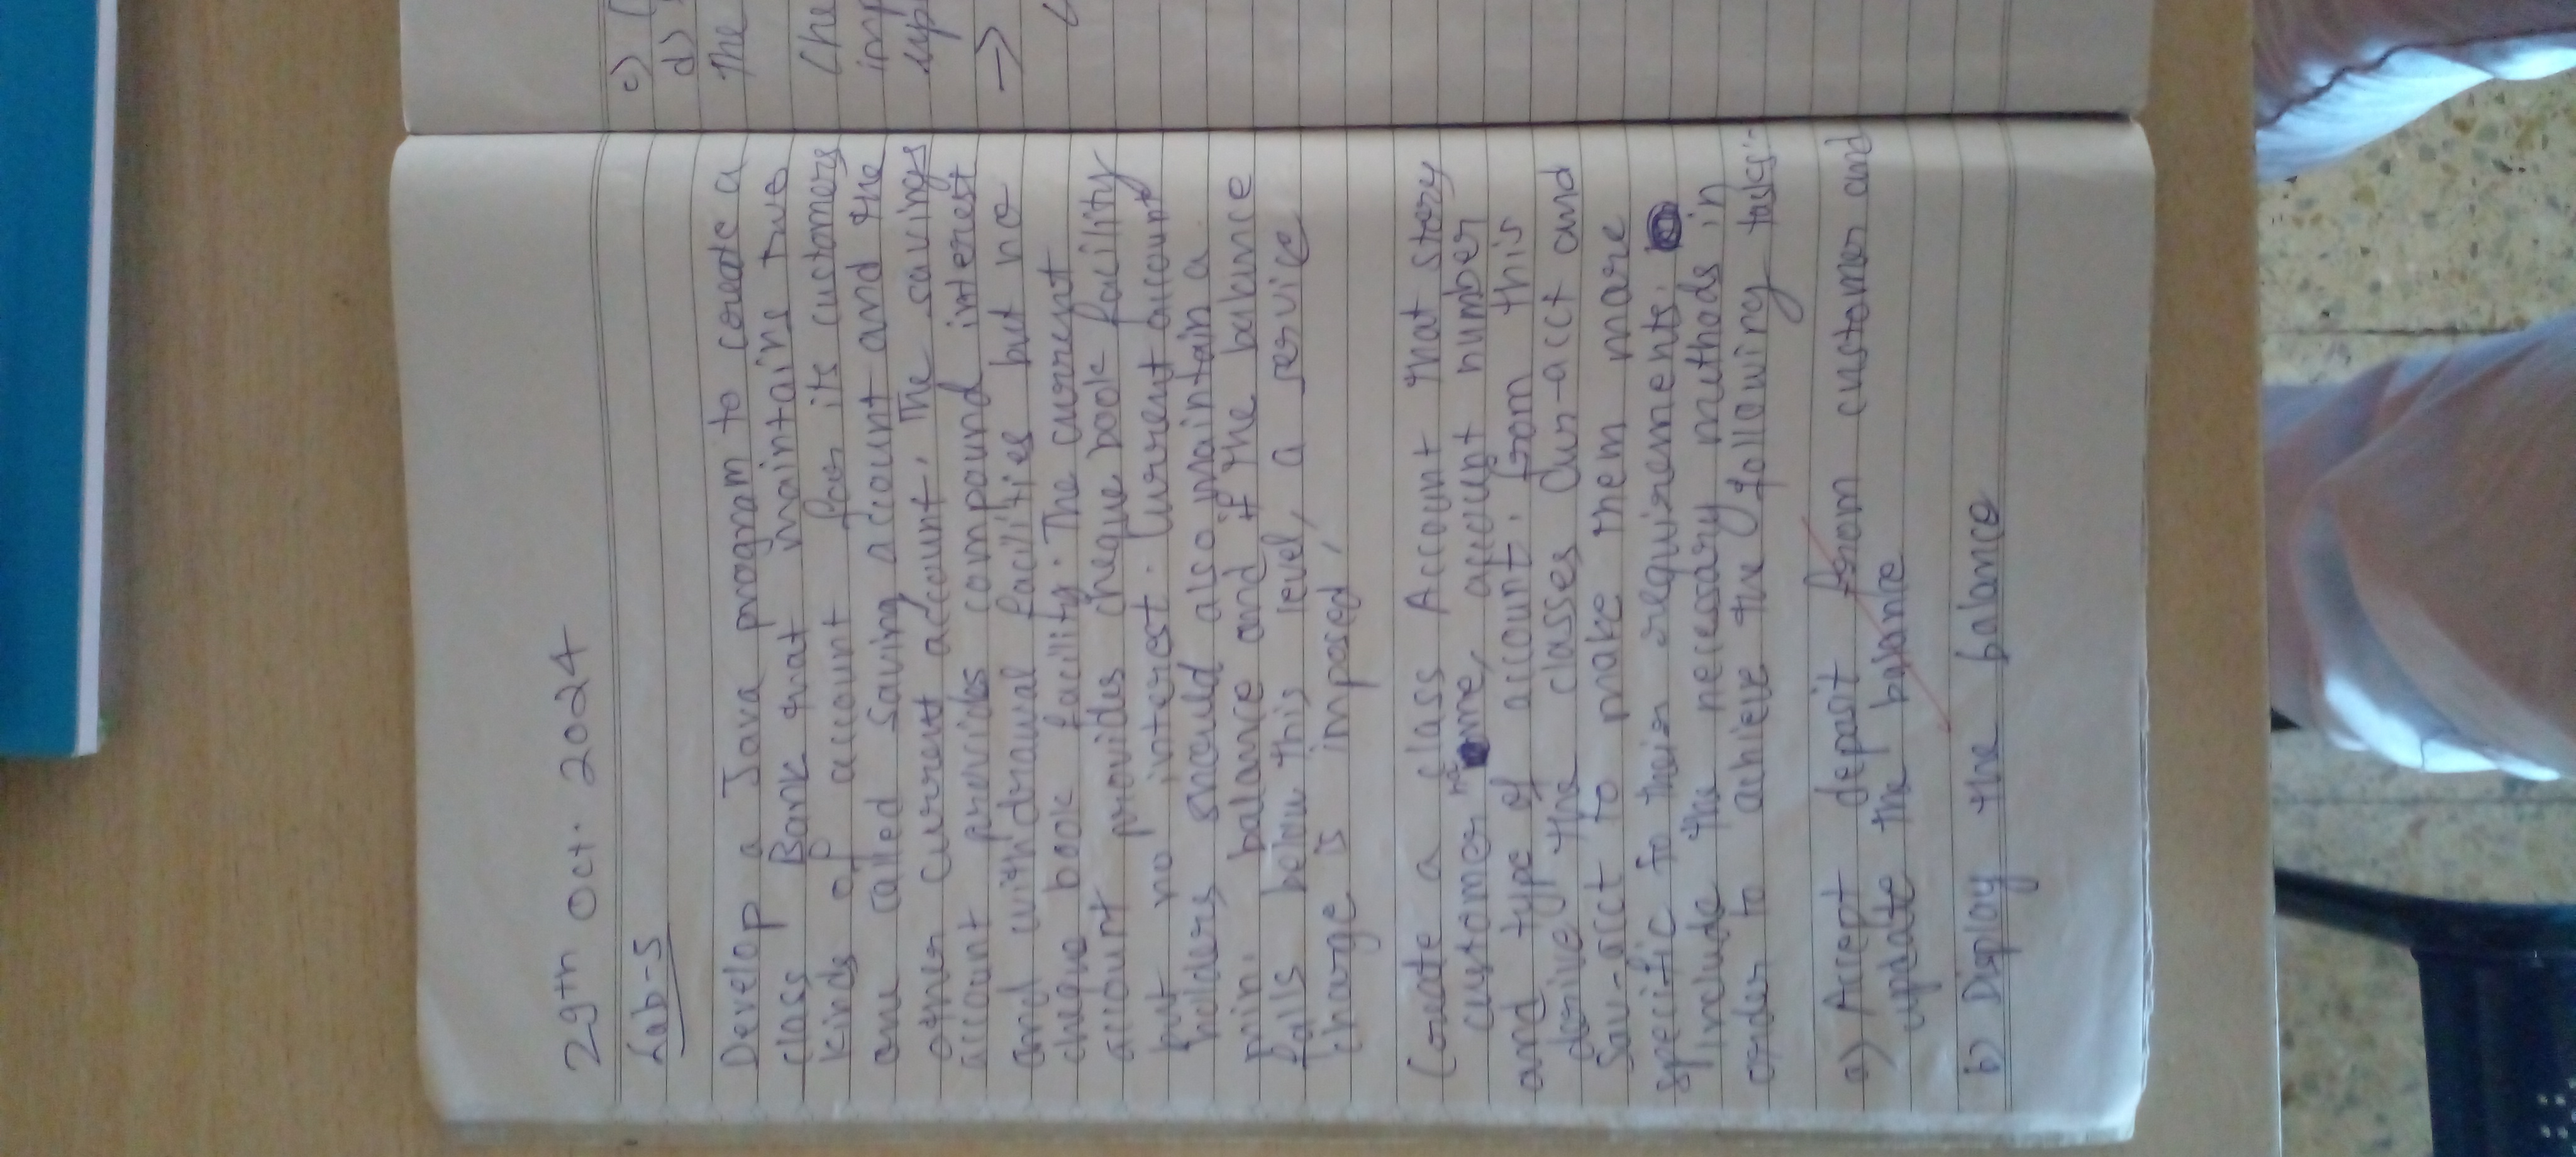 29th Oct. 2024
Lab-5
Develop a Java program to create a
class Bank that maintains two
kinds of account for its customers
one called saving account and the
other current account. The savings
account provides compound interest
and withdrawal facilities but no
cheque book facility. The current
account provides cheque book facility
but no interest. Current account
holders should also maintain a
min. balance and if the balance
falls below this level, a service
charge is imposed.
Create a class Account that story
customer name, account number
and type of account. From this
derive the classes Cur-acct and
Sav-acct to make them more
specific to their requirements.
Include the necessary methods in
order to achieve the following tasks:-
a) Accept deposit from customer and
update the balance
b) Display the balance
c)
d)
The
Che
imp
up
→